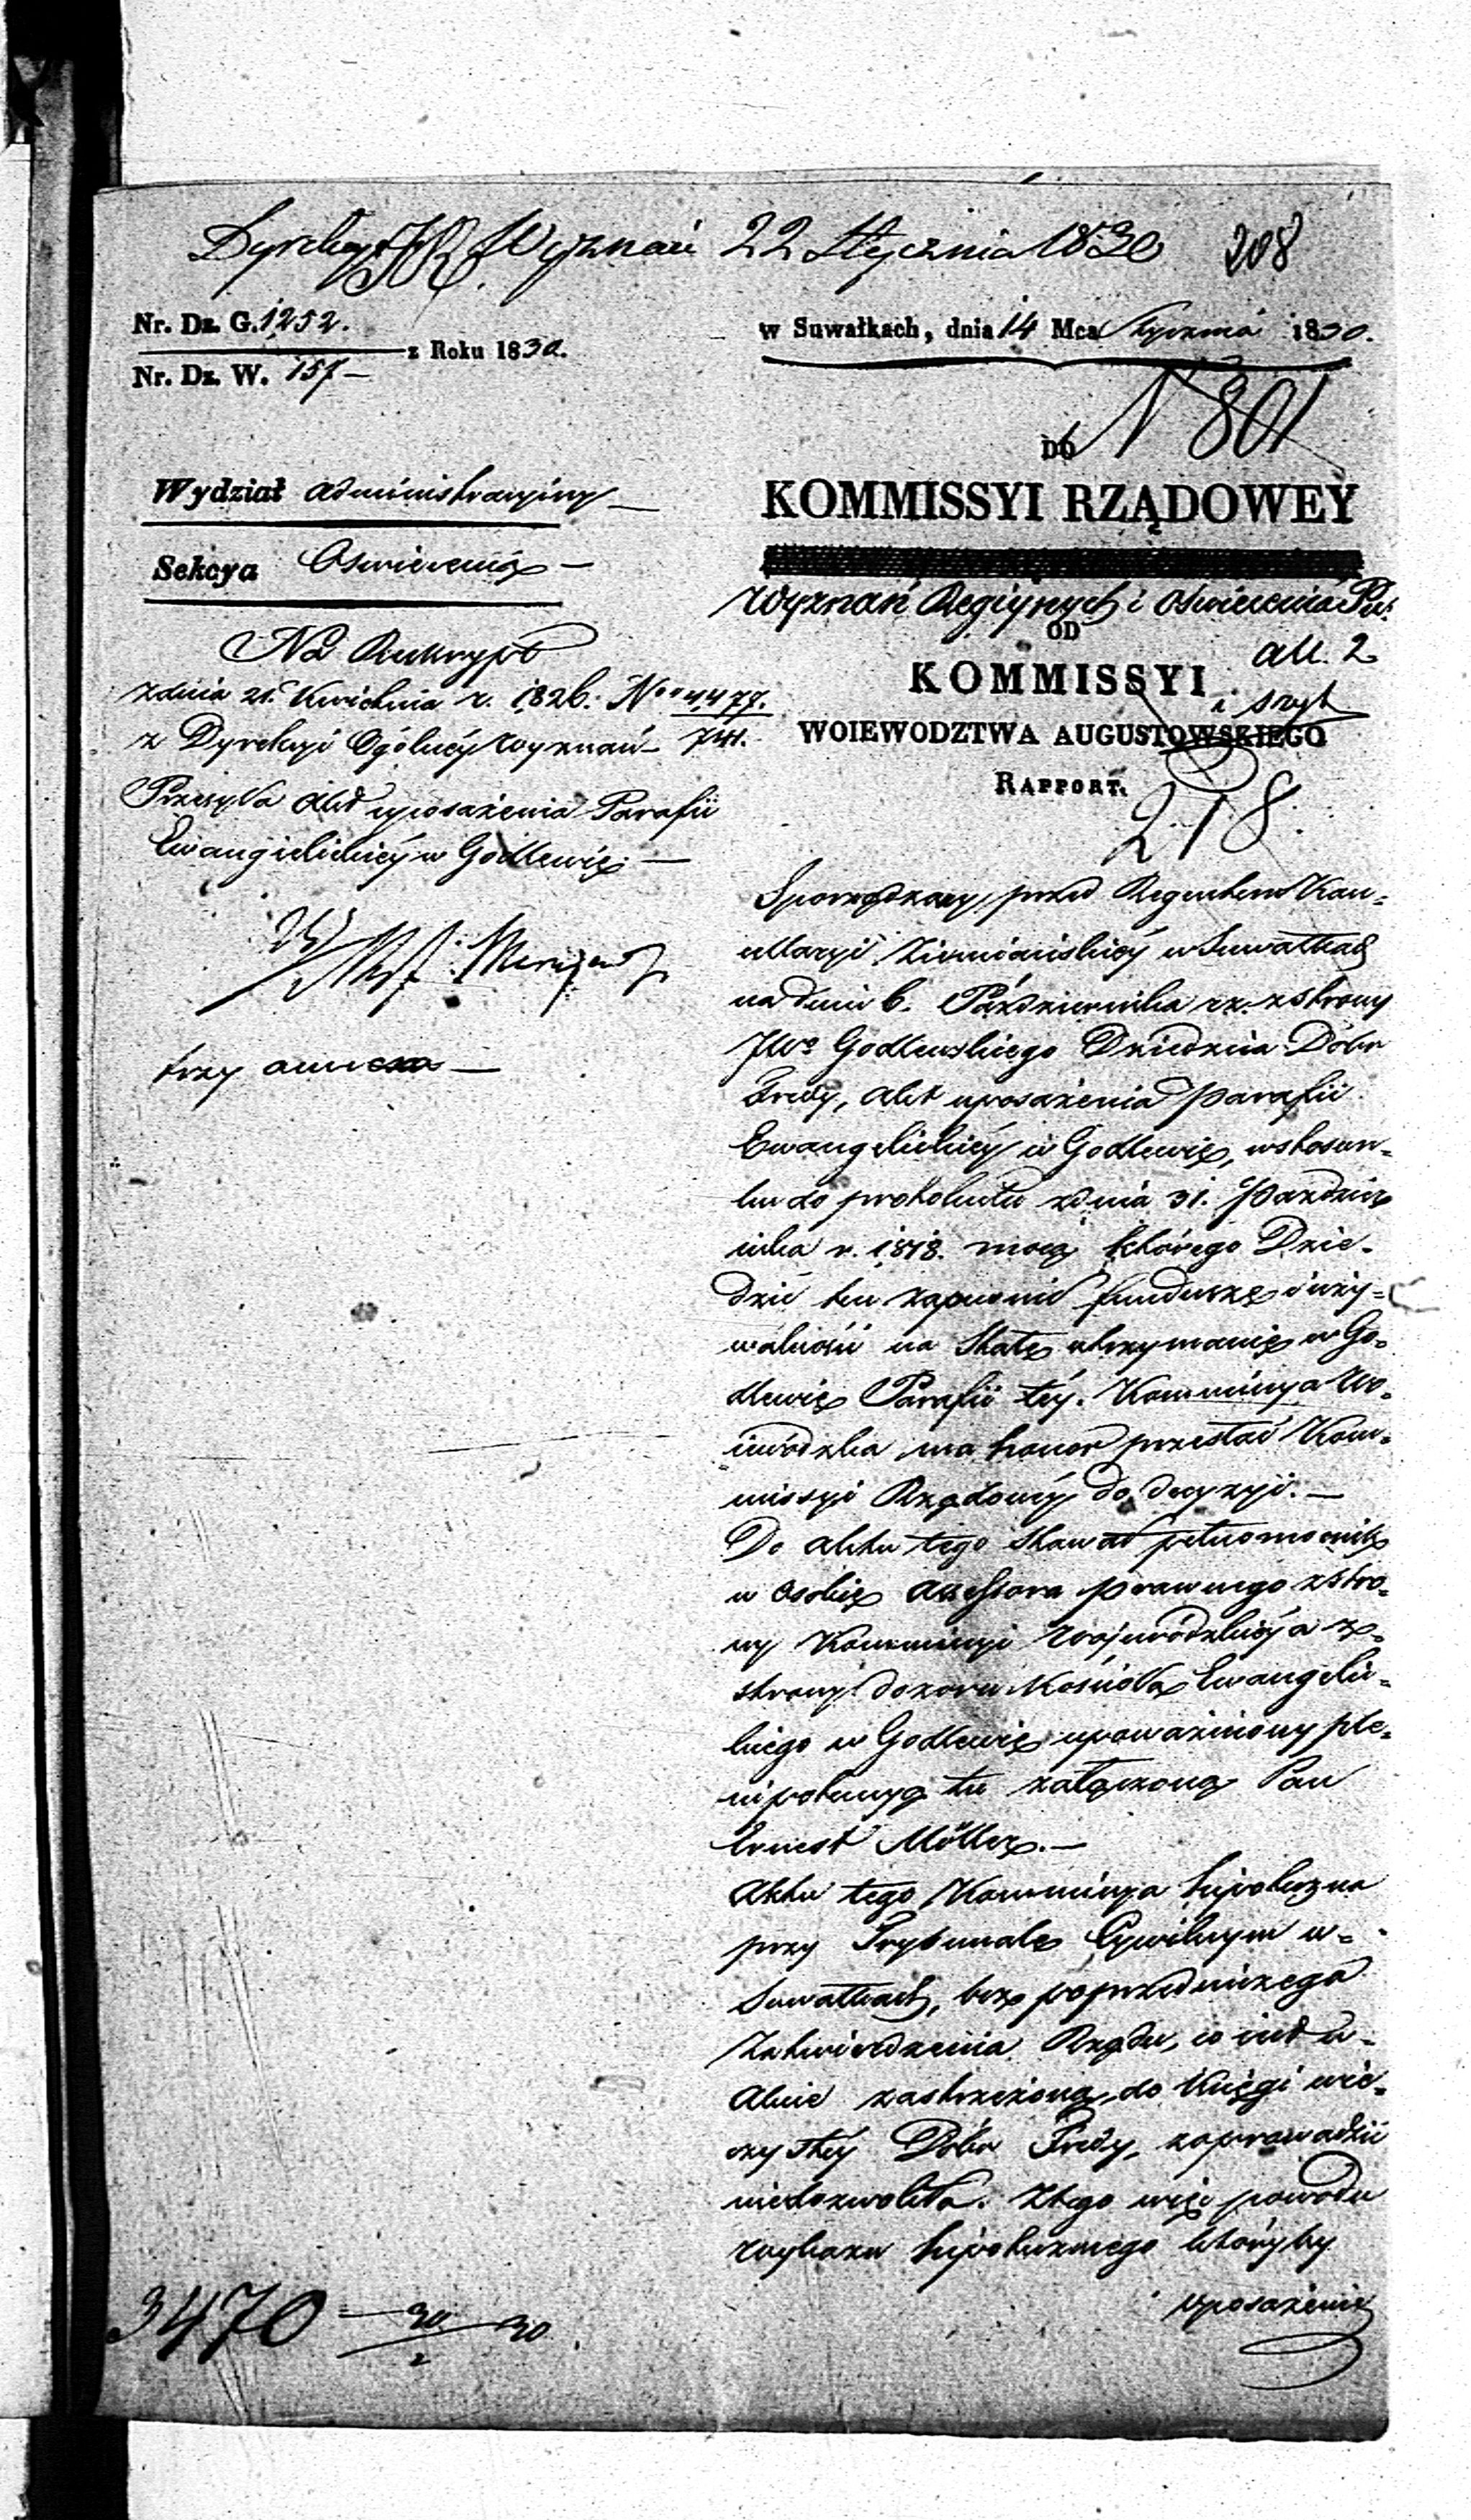 Dyrekcyi Wyznań 22 Stycznia 1830
208
Nr. Dz. G. 1252.
z Roku 1830.
Nr. Dz. W. 157 —
w Suwałkach, dnia 14 Mca Stycznia 1830.
DO
N 801
Wydział Administracyiny —
KOMMISSYI RZĄDOWEY
Sekcya Oswiecenia —
Wyznań Regiynych i Oswiecenia Pub:
OD
all. 2
KOMMISSYI
i szyt
WOIEWODZTWA AUGUSTOWSKIEGO
RAPPORT.
218
Na Reskrypt
z dnia 21. Kwietnia r. 1826. No 4477.
741.
z Dyrekcyi Ogólney Wyznań
Przesyła Akt uposażenia Parafii
Ewangielickiéy w Godlewie. —
trzy annexa —
Sporządzony przed Regentem Kan=
cellaryi Ziemiańskiéy w Suwałkach
na dniu 6. Października rz. z strony
JWo Godlewskiego Dziedzica Dóbr
Fredy, akt uposażenia Parafii
Ewangelickiéy w Godlewie, w stosun=
ku do protokułu z dnia 31. Paździer
nika r. 1818. mocą którego Dzie=
dzic ten zapewnił fundusze i uży=
walność na stałe utrzymanie w Go=
dlewie Parafii téy. Kommissya Wo=
iewódzka ma honor przesłać Kom=
missyi Rządowéy do decyzyi. —
Do aktu tego stawał pełnomocnik
w osobie Assessora prawnego z stro=
ny Kommissyi Wojewódzkiéy a ze
strony dozoru Kościoła Ewangelic=
kiego w Godlewie upoważniony ple=
nipotencyą tu załączoną Pan
Ernest Möller. —
Aktu tego Kommissya hipoteczna
przy Trybunale Cywilnym w=
Suwałkach, bez poprzedniczego
Zatwierdzenia Rządu, co iest w=
Akcie zastrzeżone, do Księgi wie=
czystéy Dóbr Fredy, zaprowadzić
niedozwoliła. Z tego więc powodu
wykazu hipotecznego któryby
uposażenie
3470 — 30/2 30.